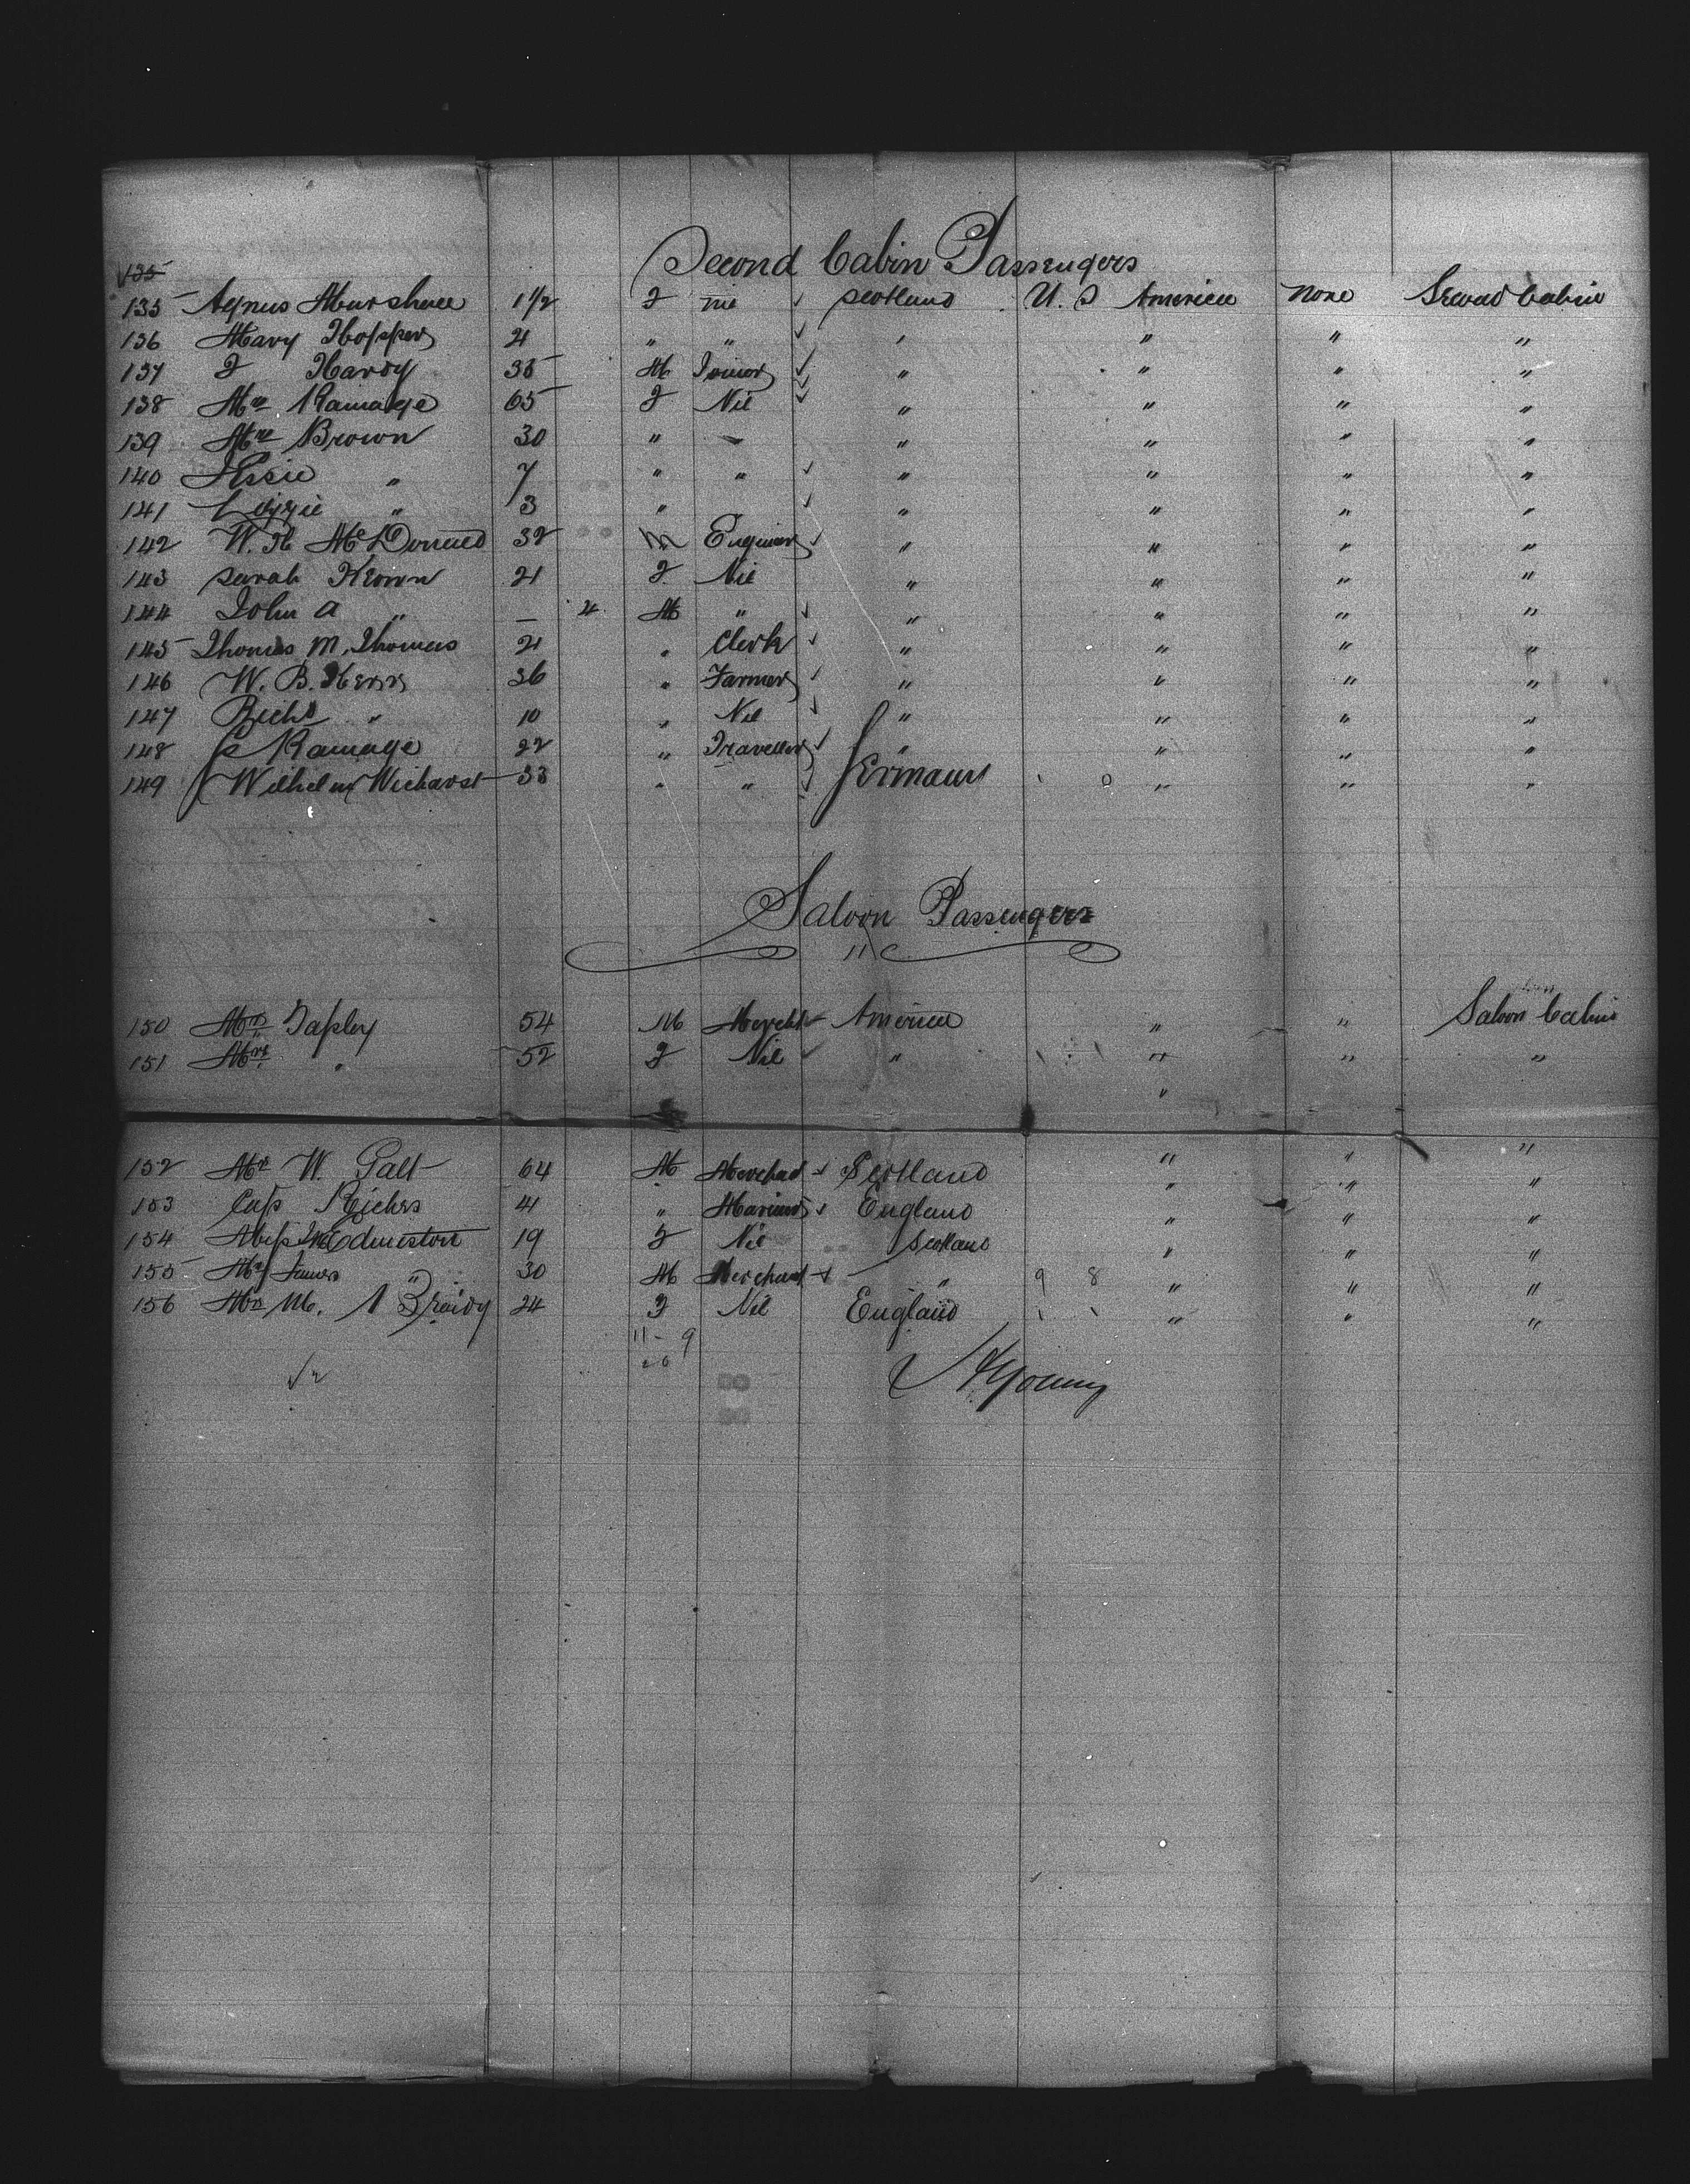 Second Cabin Passengers
135
135 Agnus Marshall 1 1/2 F nil ✓ Scotland U. S America None Second Cabin
136 Mary Hopper 21 " " ✓ " " " "
137 J Hardy 35 M Joiner ✓ " " " "
138 Mrs Ramage 65 F Nil ✓ " " " "
139 Mrs Brown 30 " " " " " "
140 Jessie " 7 " " ✓ " " " "
141 Lizzie " 3 " ✓ " " " "
142 W. H McDonald 32 M Engineer ✓ " " " "
143 Sarah Keown 21 F Nil " " " "
144 John A " – 4 M " ✓ " " " "
145 Thomas M. Thomas 21 " Clerk ✓ " " " "
146 W. B. Kerr 36 " Farmer ✓ " " " "
147 Richd " 10 " Nil ✓ " " " "
148 Ramage 22 " Traveller ✓ " " " "
149 Wilhelm 33 " " ✓ Germany " " "
Saloon Passengers
"
150 Mr Tapley 54 M Mercht ✓ America " " Saloon Cabin
151 Mrs " 52 F Nil ✓ " " " "
"
152 Mr W. Galt 64 M Merchant ✓ Scotland " " "
153 Cap Riches 41 " Mariner ✓ England " " "
154 Miss Edmiston 19 F Nil Scotland " " "
155 Mr James " 30 M Merchant ✓ " 9 8 " " "
156 Mrs M. A Braidy 24 F Nil England " " "
11 - 9
A Young